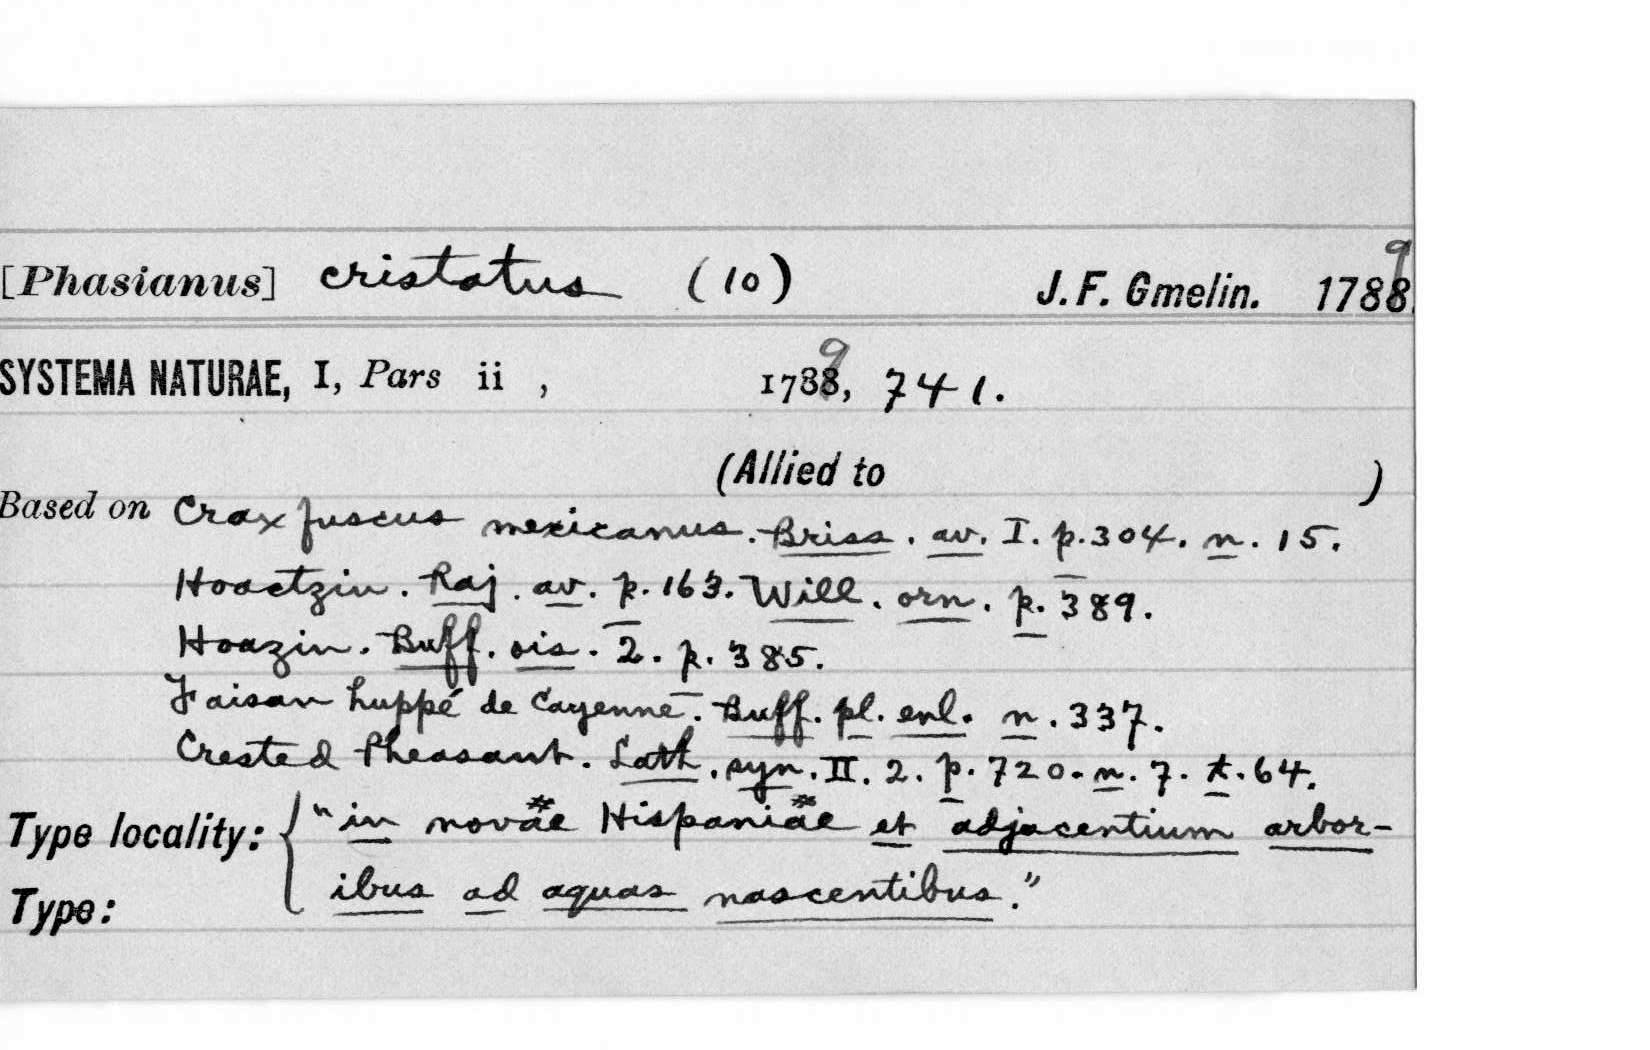 [Phasianus] cristatus (10) J. F. Gmelin. 1789
SYSTEMA NATURAE, I, Pars ii , 1789, 741.
(Allied to )
Based on Crax fuscus mexicanus. Briss. av. I. p. 304. n. 15.
Hoactzin. Raj. av. p. 163. Will. orn. p. 389.
Hoazin. Buff. ois. 2. p. 385.
Faisan huppé de Cayenne. Buff. pl. enl. n. 337.
Crested Pheasant. Lath. syn. II. 2. p. 720. n. 7. t. 64.
Type locality: { "in novae Hispaniae et adjacentium arbor-
ibus ad aquas nascentibus."
Type: